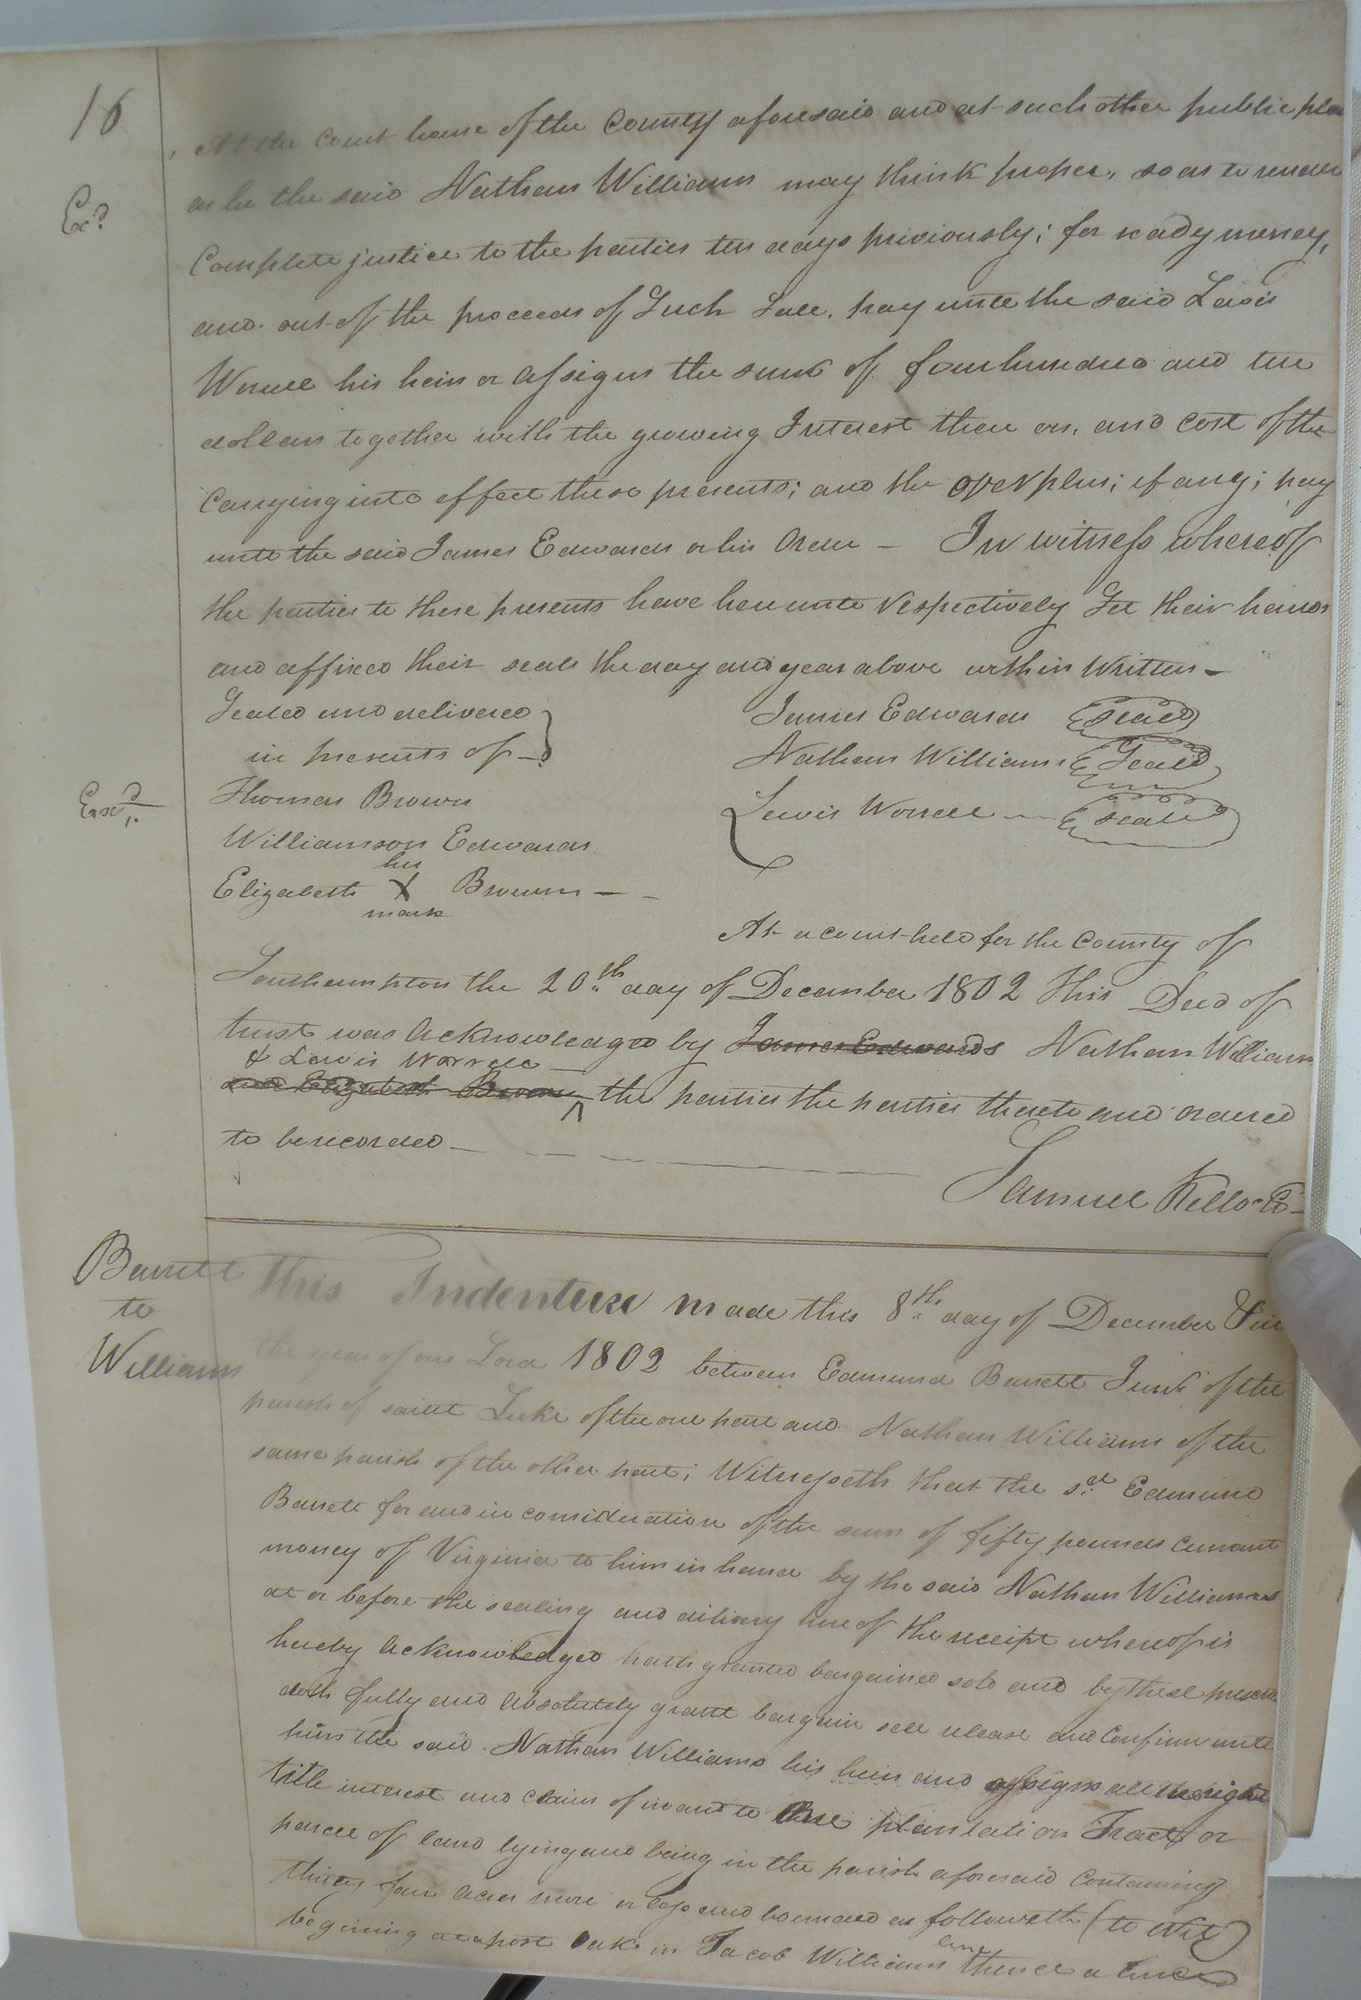 16
At the court house of the County aforesaid and at such other public pla
Exd.
as he the said Nathan Williams may think proper, so as to render
Complete justice to the parties ten days previously; for ready money,
and out of the proceeds of Such Sale, pay unto the said Lewis
Worrell his heirs or assigns the sum of four hundred and ten
dollars together with the growing Interest there on, and cost of the
Carrying into effect these presents; and the overplus; if any; pay
unto the said James Edwards or his Order — In witness whereof
the parties to these presents have here unto respectively Set their hands
and affixed their seals the day and year above within Written —
Sealed and delivered
in presents of —
James Edwards Seald
Nathan Williams Seald
Exd.
Thomas Brown
Lewis Worrell — Seald
Williamson Edwards
her
Elizabeth X Brown — —
mark
At a court held for the County of
Southampton the 20th day of December 1802 This Deed of
trust was Acknowledged by James Edwards Nathan Williams
& Lewis Worrell
and Elizabeth Brown ^ the parties the parties thereto and ordered
to be recorded —
Samuel Kello Cl
Barrett
to
Williams
This Indenture made this 8th day of December
the year of our Lord 1802 between Edmund Barrett Junr of the
parish of saint Luke of the one part and Nathan Williams of the
same parish of the other part; Witnesseth that the sd Edmund
Barrett for and in consideration of the sum of fifty pounds Currant
money of Virginia to him in hand by the said Nathan Williams
at or before the sealing and delivery here of the receipt whereof is
hereby Acknowledged hath granted bargained sold and by these presents
doth fully and Absolutely grant bargain sell release and Confirm unto
him the said Nathan Williams his heirs and assigns all the right
title interest and claim of in and to plantation Tract or
parcel of land lying and being in the parish aforesaid Containing
thirty four Acres more or less and bounded as followeth (to Wit)
line
begining at a post Oak in Jacob Williams thence a line